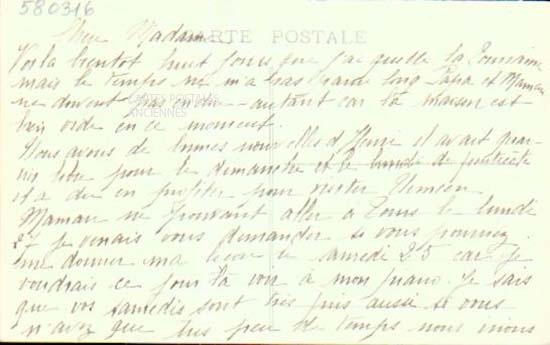 580316
Chère Madame
CARTE POSTALE
Voilà bientôt huit jours que j'ai quitté la Touraine
mais le temps ne m'a pas paru long Papa et Maman
ne doivent pas en dire autant car la maison est
bien vide en ce moment.
CARTES POSTALES
ANCIENNES
Nous avons de bonnes nouvelles d'Henri il avait quar-
tier libre pour le dimanche et le lundi de
il a dû en profiter pour visiter
Maman ne pouvant aller à Tours le lundi
27 je venais vous demander si vous pourriez
me donner ma leçon le samedi 25 car je
voudrais ce jour là voir à mon piano. Je sais
que vos samedis sont très pris aussi si vous
n'avez que très peu de temps nous